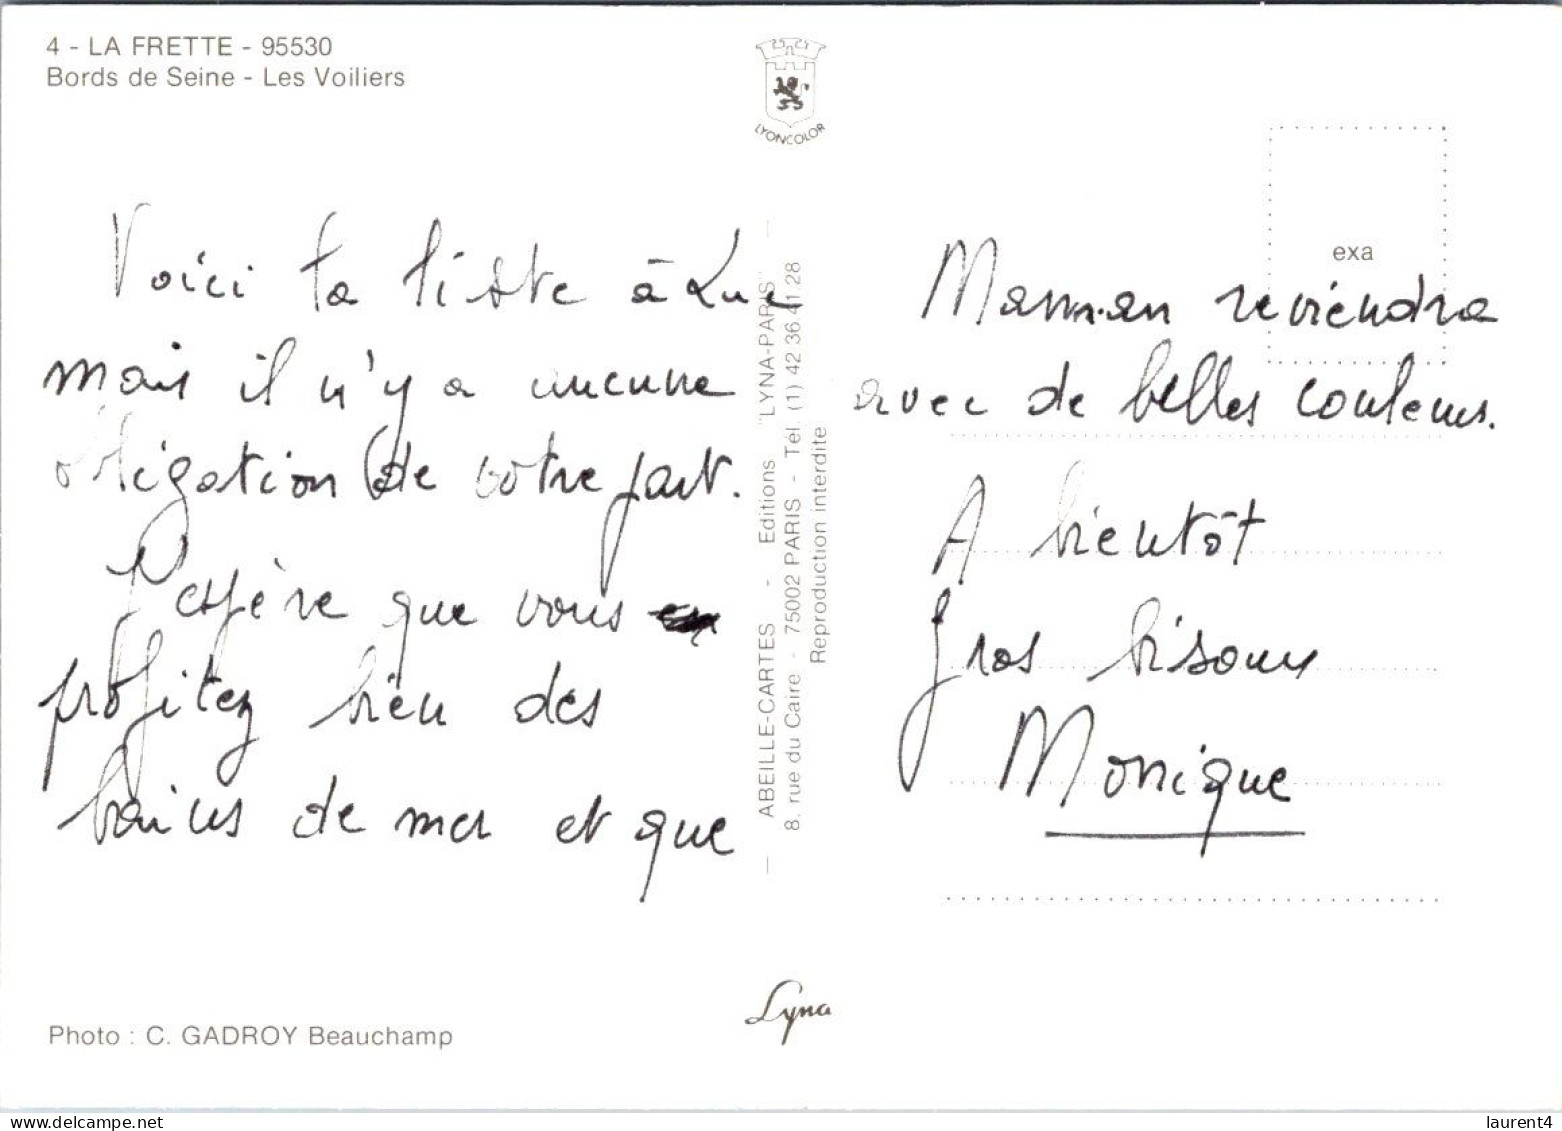 4 - LA FRETTE - 95530
Bords de Seine - Les Voiliers
LYONCOLOR
exa
Voici ta liste à Luc
mais il n'y a aucune
obligation de votre part.
J'espère que vous
profitez bien des
bains de mer et que
ABEILLE-CARTES - Editions "LYNA-PARIS"
8, rue du Caire - 75002 PARIS - Tél. (1) 42 36 41 28
Reproduction interdite
Maman reviendra
avec de belles couleurs.
A bientôt
gros bisous
Monique
Lyna
Photo : C. GADROY Beauchamp
laurent4